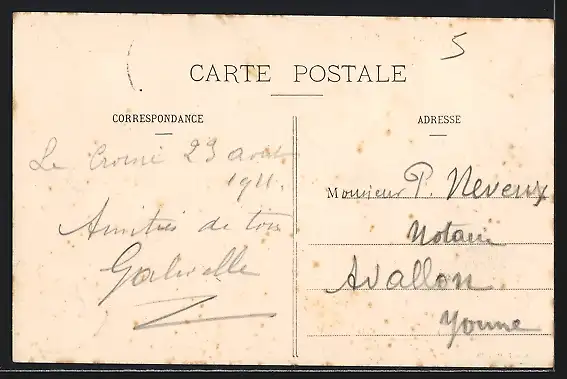 5
CARTE POSTALE
CORRESPONDANCE
ADRESSE
Le 23 août
1911.
Amitiés de tous
Monsieur P. Neveux
Notaire
Avallon
Yonne